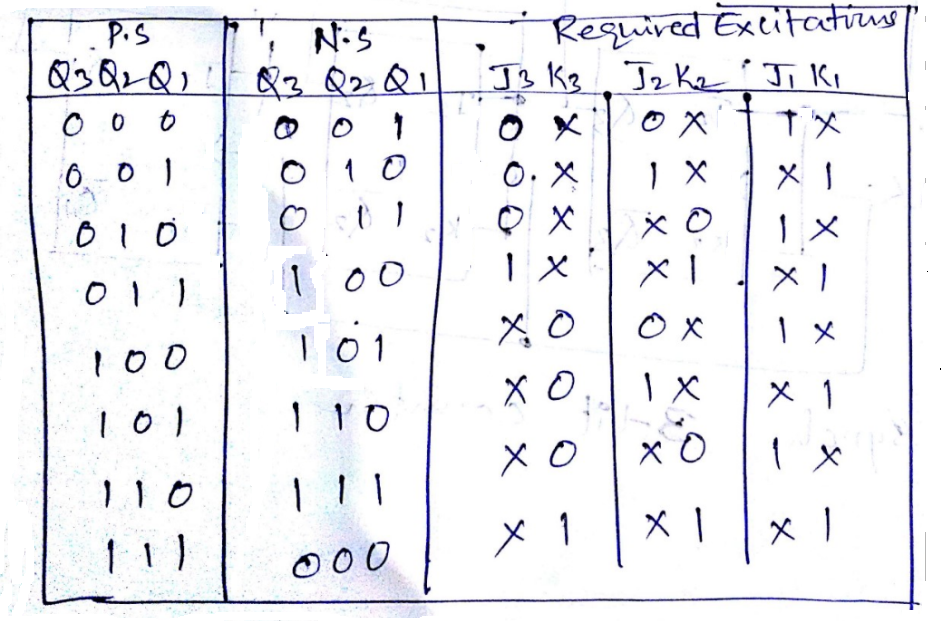 P.S N.S Required Excitations
Q3 Q2 Q1 Q3 Q2 Q1 J3 K3 J2 K2 J1 K1
0 0 0 0 0 1 0 X 0 X 1 X
0 0 1 0 1 0 0 X 1 X X 1
0 1 0 0 1 1 0 X X 0 1 X
0 1 1 1 0 0 1 X X 1 X 1
1 0 0 1 0 1 X 0 0 X 1 X
1 0 1 1 1 0 X 0 1 X X 1
1 1 0 1 1 1 X 0 X 0 1 X
1 1 1 0 0 0 X 1 X 1 X 1